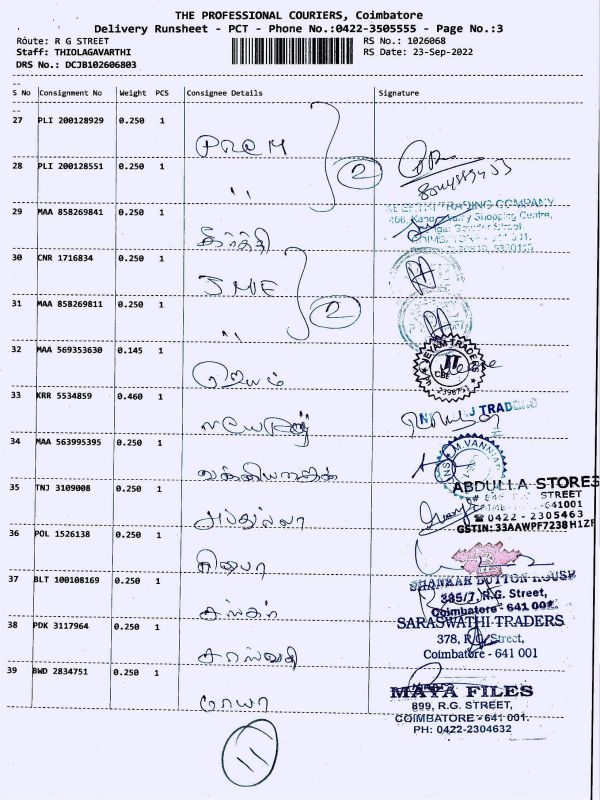 THE PROFESSIONAL COURIERS, Coimbatore
Delivery Runsheet - PCT - Phone No.:0422-3505555 - Page No.:3
Route: R G STREET RS No.: 1026068
Staff: THIOLAGAVARTHI RS Date: 23-Sep-2022
DRS No.: DCJB102606803
S No Consignment No Weight PCS Consignee Details Signature
27 PLI 200128929 0.250 1
PREM
28 PLI 200128551 0.250 1
2
,,
29 MAA 858269841 0.250 1
TRADING COMPANY
கீர்த்தி
30 CNR 1716834 0.250 1
JME
31 MAA 858269811 0.250 1
2
,,
32 MAA 569353630 0.145 1
JEYAM TRADERS
ஜெயம்
33 KRR 5534859 0.460 1
TRADERS
34 MAA 563995395 0.250 1
VANNIA
35 TNJ 3109008 0.250 1
ABDULLA STORES
STREET
641001
☎ 0422 - 2305463
GSTIN: 33AAWPF7238H1ZF
அப்துல்லா
36 POL 1526138 0.250 1
37 BLT 100108169 0.250 1
SHANKAR BUTTON HOUSE
385/7, R.G. Street,
Coimbatore - 641 001
சங்கர்
38 PDK 3117964 0.250 1
SARASWATHI TRADERS
378, R.G. Street,
Coimbatore - 641 001
சரஸ்வதி
39 BWD 2834751 0.250 1
MAYA FILES
899, R.G. STREET,
COIMBATORE - 641 001.
PH: 0422-2304632
மாயா
11